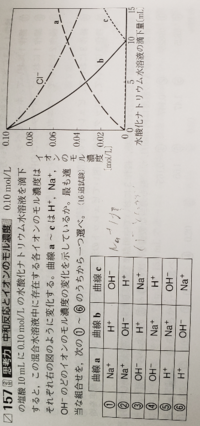 157 思考力 中和反応とイオンのモル濃度 0.10 mol/L
の塩酸 10 mL に 0.10 mol/L の水酸化ナトリウム水溶液を滴下
すると，この混合水溶液中に存在する各イオンのモル濃度は
それぞれ右の図のように変化する。曲線 a ～ c は H⁺, Na⁺,
OH⁻ のどのイオンのモル濃度の変化を示しているか。最も適
当な組合せを，次の①～⑥のうちから一つ選べ。
曲線 a 曲線 b 曲線 c
① Na⁺ H⁺ OH⁻
② Na⁺ OH⁻ H⁺
③ OH⁻ H⁺ Na⁺
④ OH⁻ Na⁺ H⁺
⑤ H⁺ Na⁺ OH⁻
⑥ H⁺ OH⁻ Na⁺
イオンのモル濃度
0.10
0.08
0.06
0.04
0.02
0
a
Cl⁻
b
c
0 5 10 15
[mL]
水酸化ナトリウム水溶液の滴下量